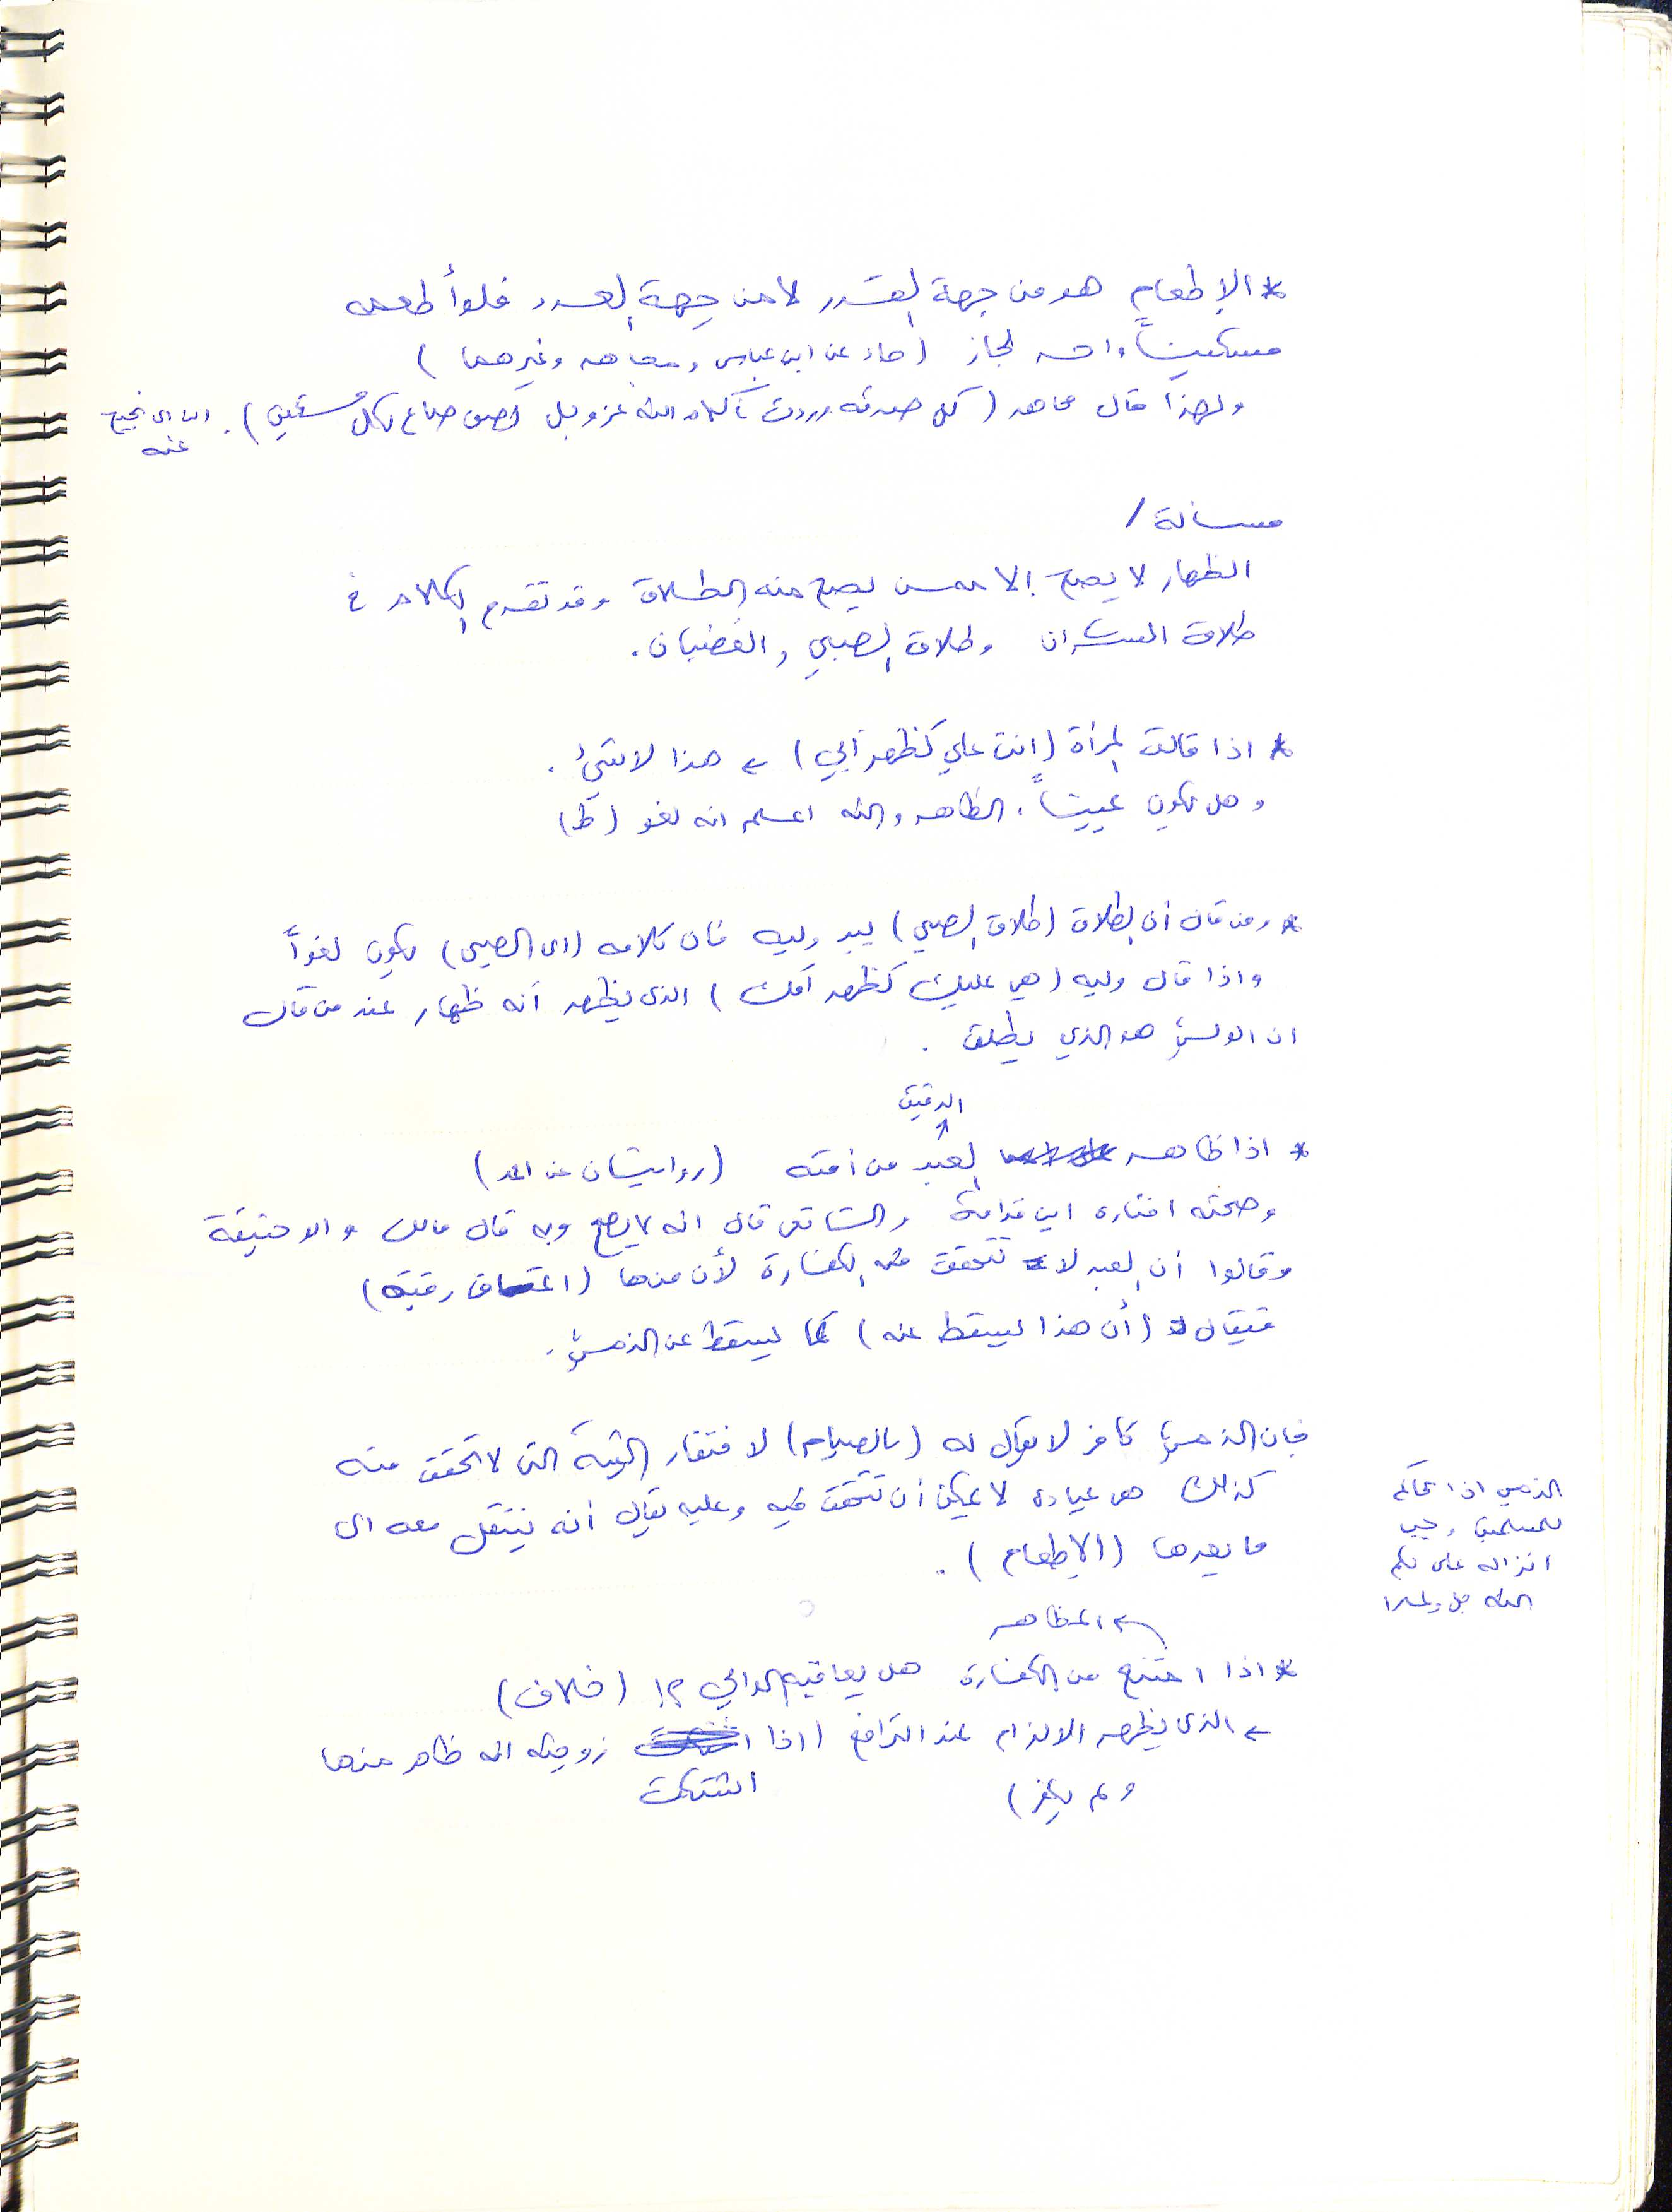 * الإطعام هو من جهة القدر لا من جهة العدد فلو أطعم
مسكيناً واحد لجاز (جاء عن ابن عباس ومجاهد وغيرهما)
ولهذا قال مجاهد (كل صدقة وردت بكلام الله عز وجل نصف صاع لكل مسكين). ابن ابي نجيح
عنه
مسألة /
الظهار لا يصح إلا ممن يصح منه الطلاق وقد تقدم الكلام في
طلاق السكران وطلاق الصبي والغضبان.
* اذا قالت المرأة (انت علي كظهر أبي) ← هذا لا شيء.
وهل يكون يميناً. الظاهر والله اعلم انه لغو (ظ)
* ومن قال أن الطلاق (طلاق الصبي) بيد وليه فان كلامه (اي الصبي) يكون لغواً
واذا قال وليه (هي عليك كظهر أمك) الذي يظهر أنه ظهار عند من قال
ان الولي هو الذي يطلق.
الرقيق
* اذا ظاهر العبد من أمته (روايتان عن احمد)
وصحته اختاره ابن قدامة والشافعي قال انه لا يصح وبه قال مالك و ابو حنيفة
وقالوا أن العبد لا تتحقق منه الكفارة لأن منها (اعتاق رقبة)
فيقال (أن هذا يسقط عنه) كما يسقط عن الذمي.
فان الذمي كافر لا يقال له (بالصيام) لافتقار النية التي لا تتحقق منه
كذلك هي عبادة لا يمكن أن تتحقق فيه وعليه يقال أنه ينتقل معه الى
ما بعدها (الإطعام).
الذمي اذا تحاكم
للمسلمين وجب
انزاله على حكم
الله جل وعلا
← المظاهر
* اذا امتنع من الكفارة هل يعاقبه الوالي ؟! (خلاف)
← الذي يظهر الالزام عند الترافع (اذا اشتكت زوجته انه ظاهر منها
ولم يكفر)